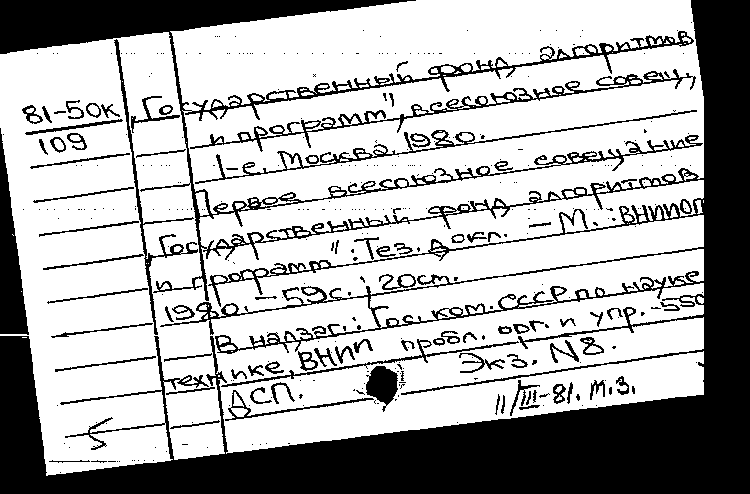 81-50к
109
„Государственный фонд алгоритмов
и программ", всесоюзное совещ.,
1-е. Москва. 1980.
Первое всесоюзное совещание
„Государственный фонд алгоритмов
и программ": Тез. докл. – М.: ВНИИОП
1980. – 59с.; 20см.
В надзаг.: Гос. ком. СССР по науке
технике, ВНИИ пробл. орг. и упр. -550
ДСП. Экз. N8.
11/III-81. М.З.
5